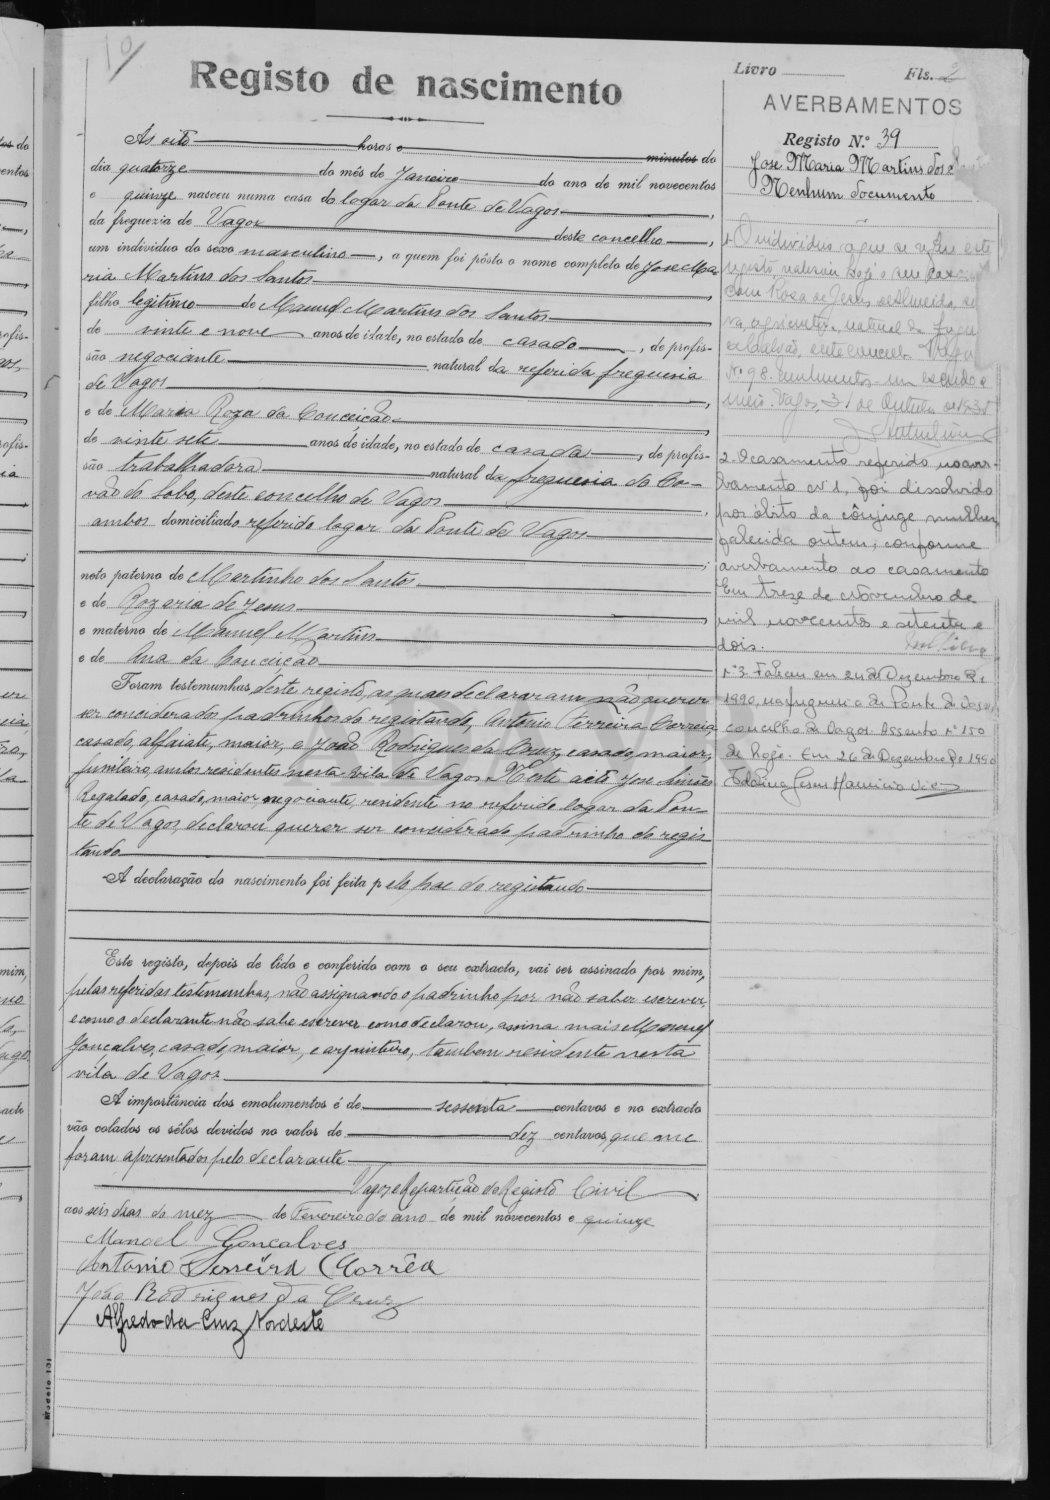 Registo de nascimento
Ás oito horas e minutos do
dia quatorze do mês de Janeiro do ano de mil novecentos
e quinze nasceu numa casa do logar da Ponte de Vagos,
da freguezia de Vagos deste concelho,
um individuo do sexo masculino, a quem foi pôsto o nome completo de José Ma-
ria Martins dos Santos
filho legitimo de Manuel Martins dos Santos
de vinte e nove anos de idade, no estado de casado, de profis-
são negociante natural da referida freguesia
de Vagos,
e de Maria Roza da Conceição
de vinte sete anos de idade, no estado de casada, de profis-
são trabalhadora natural da freguesia da Co-
vão do Lobo, deste concelho de Vagos,
ambos domiciliado referido logar da Ponte de Vagos
neto paterno de Martinho dos Santos
e de Rozaria de Jesus
e materno de Manuel Martins
e de Ana da Conceição
Foram testemunhas deste registo, as quaes declararam não querer
ser conciderados padrinhos do registando, António Ferreira Correia,
casado, alfaiate, maior, e João Rodrigues da Cruz, casado, maior,
funileiro, ambos residentes nesta vila de Vagos. Neste acto José Simões
Regalado, casado, maior negociante, residente no referido logar da Pon-
te de Vagos, declarou querer ser conciderado padrinho do regis
tando
A declaração do nascimento foi feita pelo pae do registando
Este registo, depois de lido e conferido com o seu extracto, vai ser assinado por mim,
pelas referidas testemunhas, não assignando o padrinho por não saber escrever,
e como o declarante não sabe escrever como declarou, assina mais Manuel
Gonçalves, casado, maior, carpinteiro, tambem residente nesta
vila de Vagos
A importância dos emolumentos é de sessenta centavos e no extracto
vão colados os sêlos devidos no valor de dez centavos, que me
foram apresentados pelo declarante
Vagos e Repartição do Registo Civil
aos seis dias do mez de Fevereiro do ano de mil novecentos e quinze
Manoel Gonçalves
Antonio Ferreira Corrêa
João Rodrigues da Cruz
Alfredo da Cruz Nordeste
Modelo 131
Livro Fls. 2
AVERBAMENTOS
Registo N.º 39
José Maria Martins dos
Nenhum documento
1 O individuo a que se refere este
registo, realisou hoje o seu
com Rosa de Jesus de Almeida,
natural da
deste concelho
Nº 98. Emolumentos um escudo e
meio. Vagos, 31 de Outubro de
2. O casamento referido no aver-
bamento nº 1, foi dissolvido
por óbito da cônjuge mulher,
falecida ontem, conforme
averbamento ao casamento
Em treze de Novembro de
mil novecentos e setenta e
dois.
Nº 3. Faleceu em 24 de Dezembro de
1990, na freguesia de Ponte de Vagos,
concelho de Vagos. Assento nº 150
de hoje. Em 26 de Dezembro de 1990